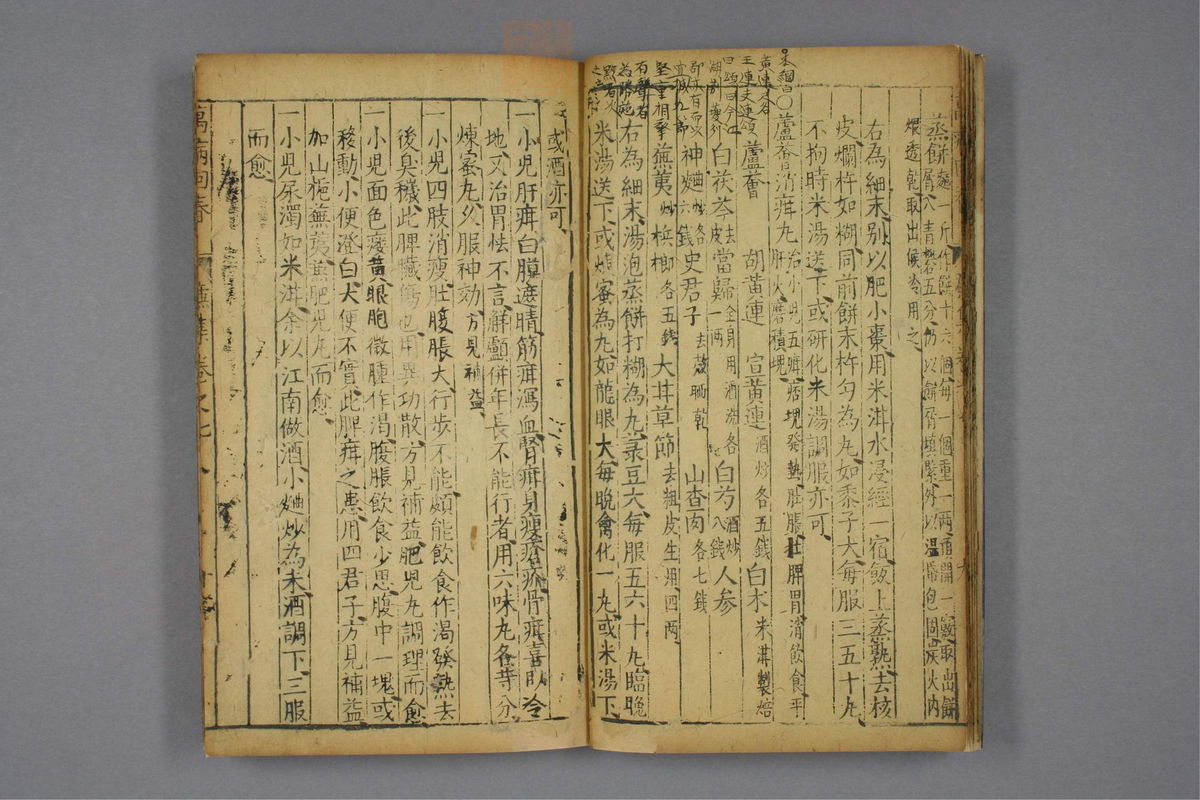 蒸餅麵一斤作餅十六個每一個重一兩頂開一竅取出餅
屑入青礬五分仍以餅屑填緊外以溫帋包固慢火內
煨透乾取出候冷用之
右為細末別以肥小棗用米泔水浸經一宿飯上蒸熟去核
皮爛杵如糊同前餅末杵勻為丸如黍子大每服三五十丸
不拘時米湯送下或研化米湯調服亦可
○蘆薈消疳丸治小兒五疳痞塊發熱肚脹壯脾胃消飲食平
肝火磨積塊
蘆薈 胡黃連 宣黃連酒炒各五錢白朮米泔製焙
白茯苓去皮當歸全身用酒洗各一兩白芍酒炒八錢人參
神麯炒六錢史君子去殼晒乾山查肉各七錢
蕪荑炒檳榔各五錢大甘草節去粗皮生用四兩
右為細末湯泡蒸餅打糊為丸菉豆大每服五六十丸臨晚
米湯送下或煉蜜為丸如龍眼大每晚禽化一丸或米湯下
或酒亦可
一小兒肝疳白膜遮睛筋疳瀉血腎疳身瘦瘡疥骨疳喜臥冷
地又治胃怯不言解顱併年長不能行者用六味丸各等分
煉蜜丸久服神効方見補益
一小兒四肢消瘦肚腹脹大行步不能頗能飲食作渴發熱去
後臭穢此脾臟傷也用異功散方見補益肥兒丸調理而愈
一小兒面色痿黃眼胞微腫作渴腹脹飲食少思腹中一塊或
移動小便澄白大便不實此脾疳之患用四君子方見補益
加山梔蕪荑兼肥兒丸而愈
一小兒尿濁如米泔余以江南做酒小麯炒為末酒調下三服
而愈
萬病回春
卷之七